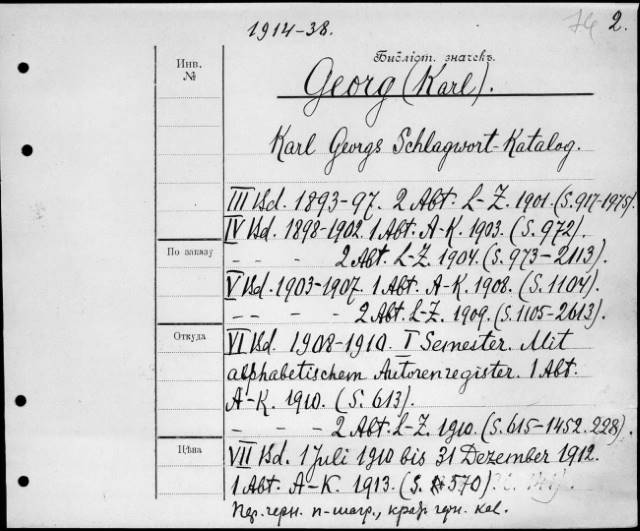 1914-38.
2.
Инв.
№
Библіот. значекъ.
Georg (Karl).
Karl Georgs Schlagwort-Katalog.
III Bd. 1893-97. 2 Abt. L-Z. 1901. (S. 917-1975).
IV Bd. 1898-1902. 1 Abt. A-K. 1903. (S. 972).
По заказу
- - - 2 Abt. L-Z. 1904. (S. 973-2113).
V Bd. 1903-1907. 1 Abt. A-K. 1908. (S. 1104).
- - - 2 Abt. L-Z. 1909. (S. 1105-2613).
Откуда
VI Bd. 1908-1910. I Semester. Mit
alphabetischem Autorenregister. 1 Abt.
A-K. 1910. (S. 613).
- - - 2 Abt. L-Z. 1910. (S. 615-1452. 228).
Цѣна
VII Bd. 1 Juli 1910 bis 31 Dezember 1912.
1 Abt. A-K. 1913. (S. 570).
Пер. черн. п-шагр., крап. черн. кол.